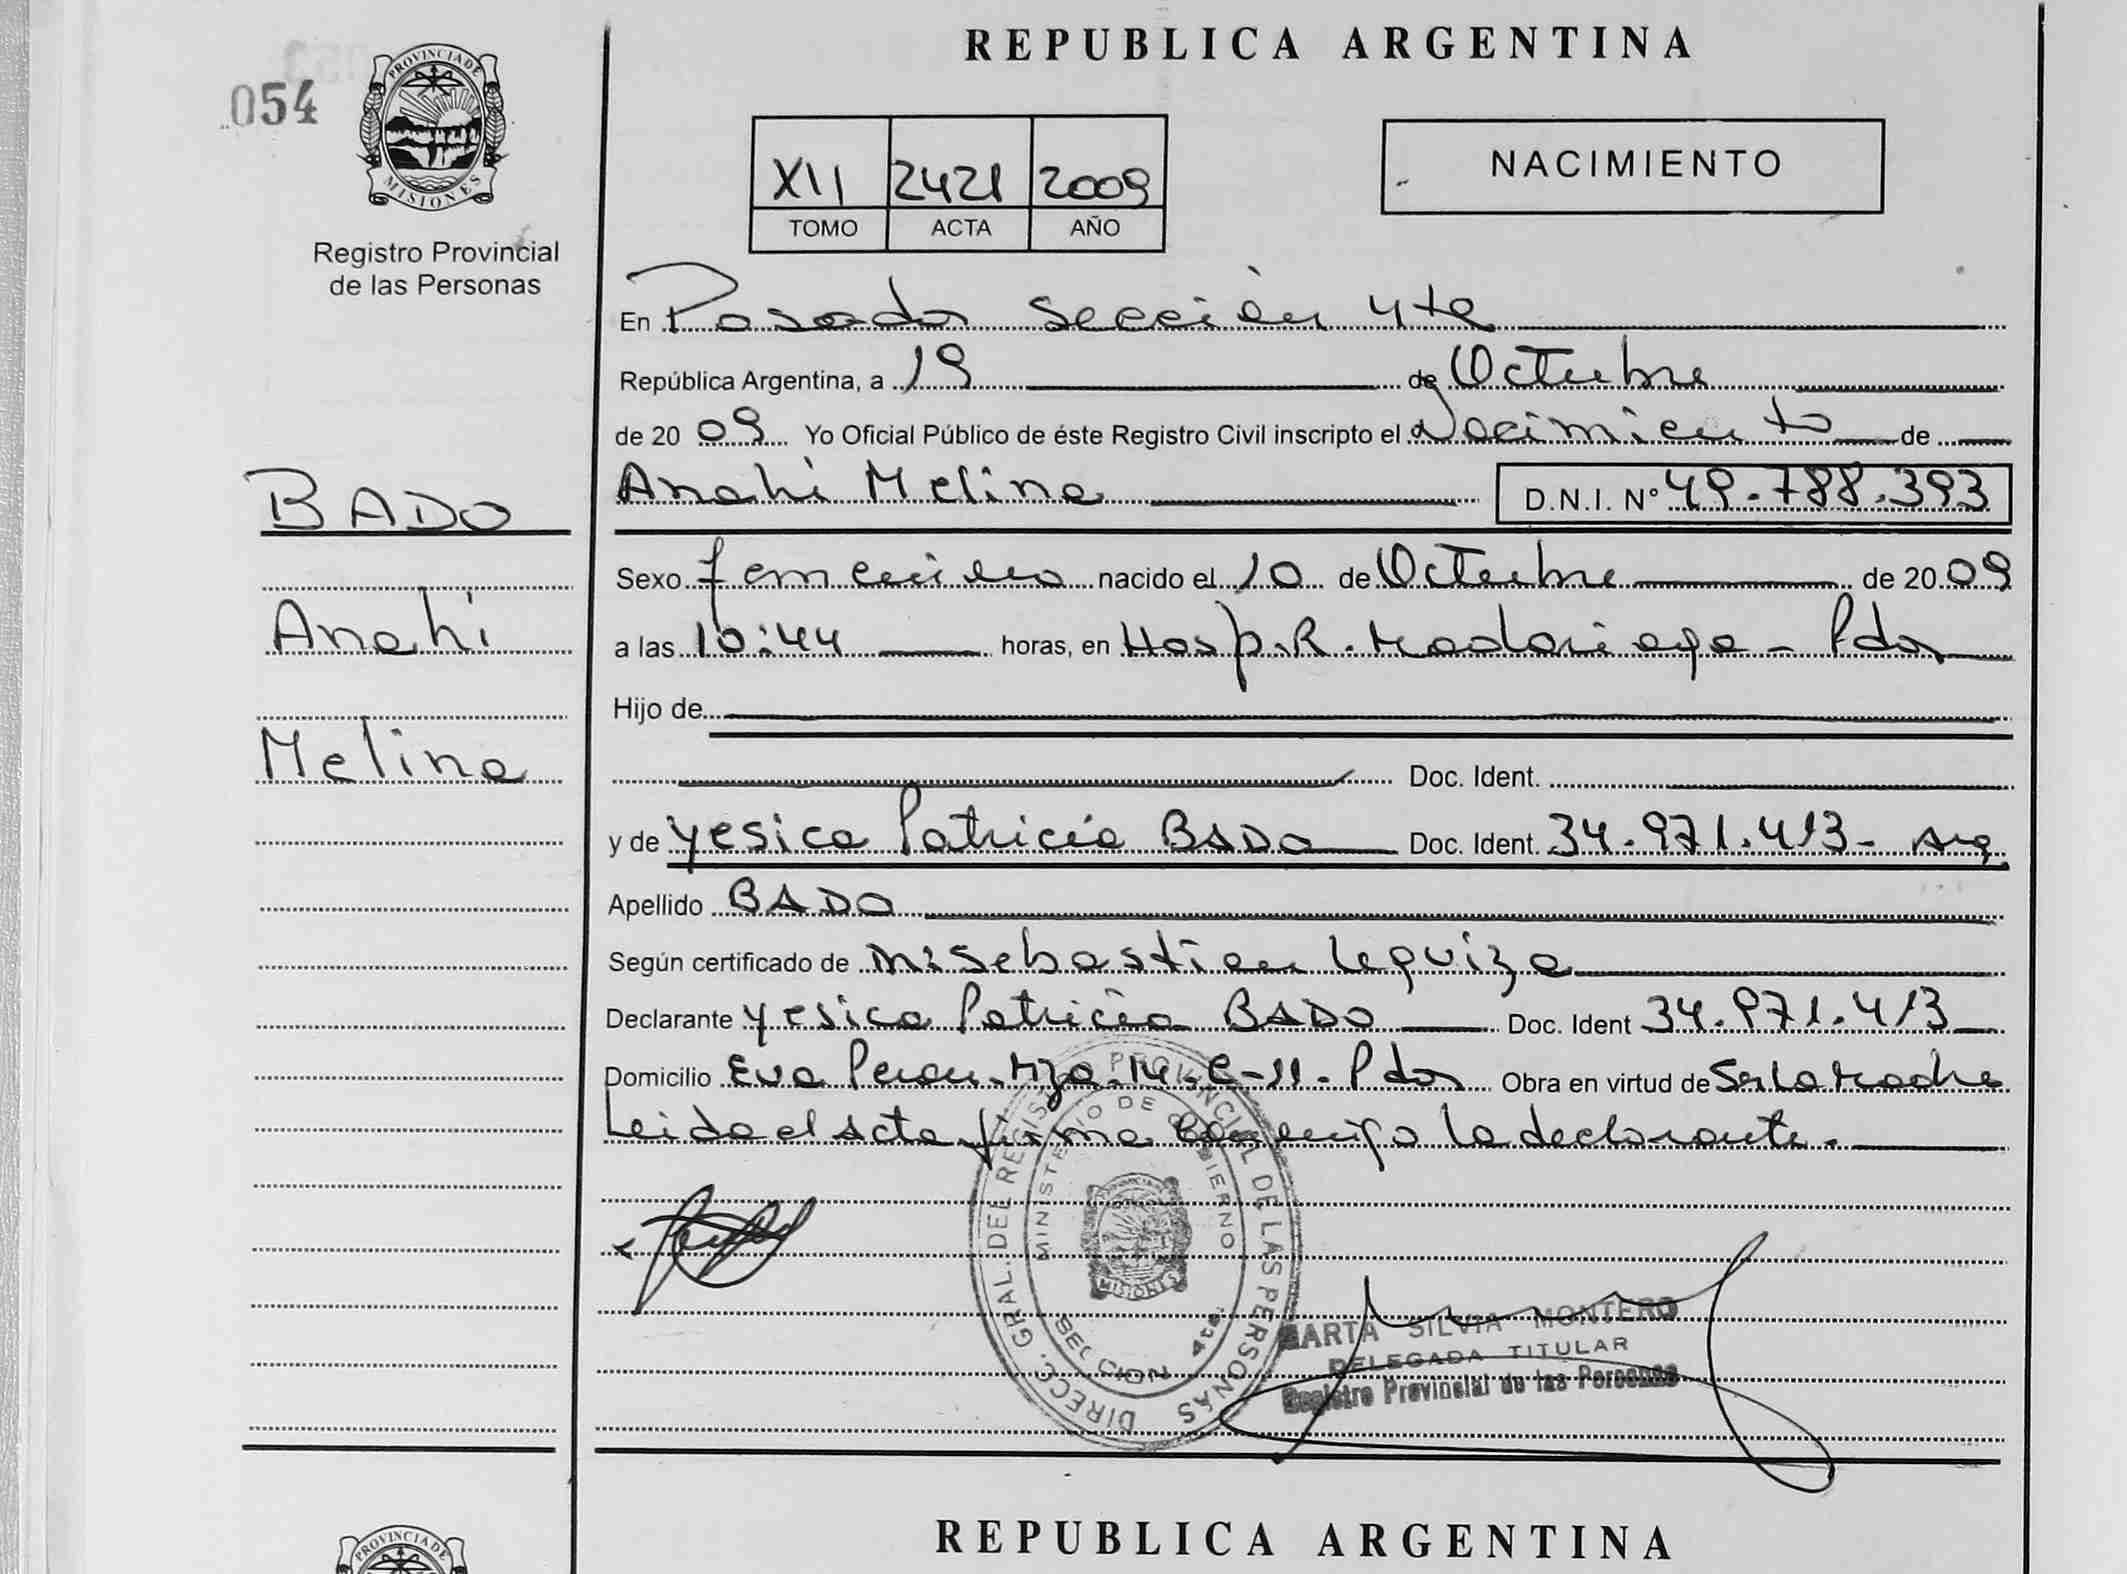 REPUBLICA ARGENTINA
054
PROVINCIA DE
MISIONES
Registro Provincial
de las Personas
XII 2421 2009
TOMO ACTA AÑO
NACIMIENTO
En Posadas Sección 4ta
República Argentina, a 19 de Octubre
de 2009 Yo Oficial Público de éste Registro Civil inscripto el Nacimiento de
Anahi Melina D.N.I. Nº 49.788.393
BADO
Anahi
Melina
Sexo femenino nacido el 10 de Octubre de 2009
a las 10:44 horas, en Hosp. R. Madariaga - Pdas
Hijo de
Doc. Ident.
y de Yesica Patricia BADO Doc. Ident. 34.971.413- Arg
Apellido BADO
Según certificado de Sebastian Leguiza
Declarante Yesica Patricia BADO Doc. Ident 34.971.413
Domicilio Eva Peron - Mza. 14 - C-11 - Pdas Obra en virtud de Ser la Madre
Leida el Acta firma conmigo la declarante.
DIRECC. GRAL. DEL REGISTRO PROVINCIAL DE LAS PERSONAS
MINISTERIO DE GOBIERNO
MISIONES
SECCION 4ta.
MARTA SILVIA MONTERO
DELEGADA TITULAR
Registro Provincial de las Personas
REPUBLICA ARGENTINA
PROVINCIA DE